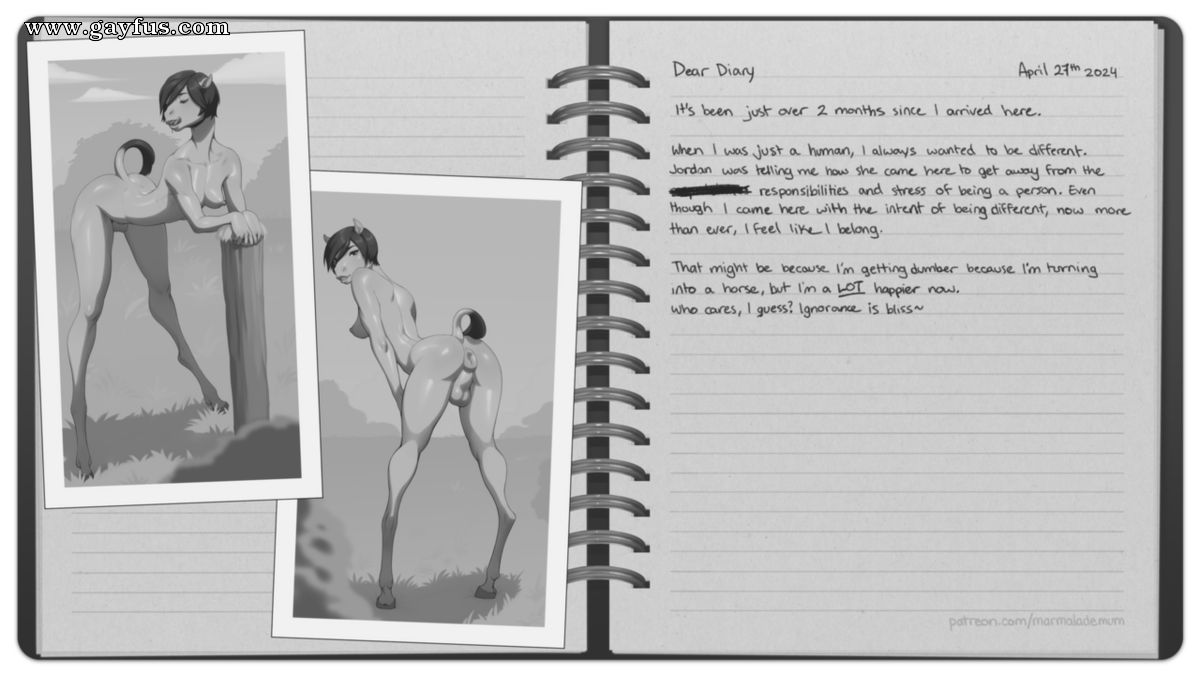 www.gayfus.com
Dear Diary
April 27th 2024
It's been just over 2 months since I arrived here.
When I was just a human, I always wanted to be different.
Jordan was telling me how she came here to get away from the
responsibilities and stress of being a person. Even
though I came here with the intent of being different, now more
than ever, I feel like I belong.
That might be because I'm getting dumber because I'm turning
into a horse, but I'm a LOT happier now.
Who cares, I guess? Ignorance is bliss~
patreon.com/marmalademum